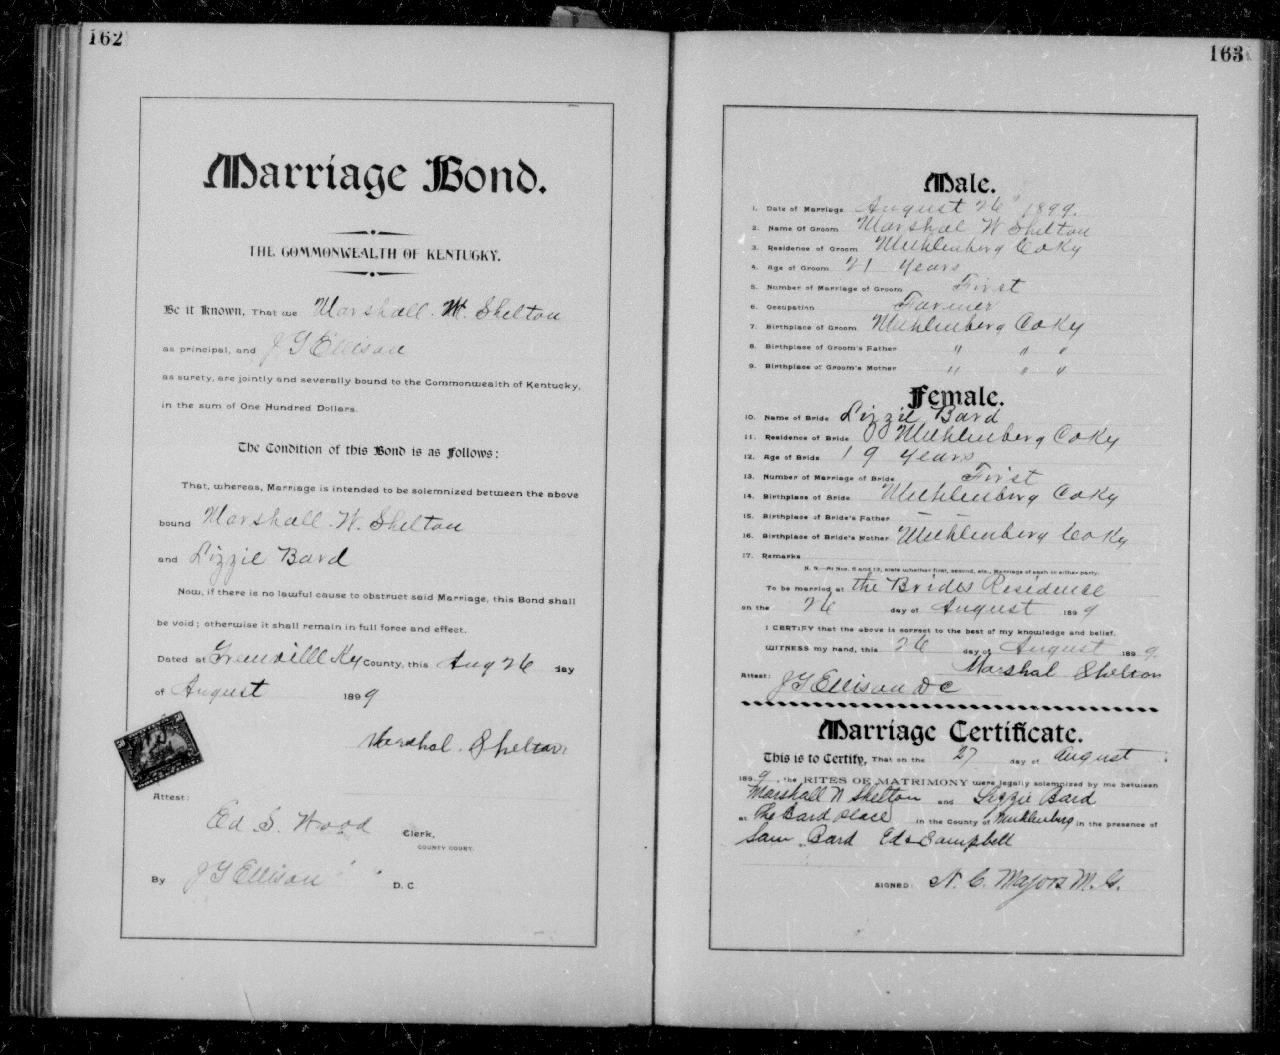 162
Marriage Bond.
THE COMMONWEALTH OF KENTUCKY.
Be it Known, That we Marshall W. Shelton
as principal, and J G Ellison
as surety, are jointly and severally bound to the Commonwealth of Kentucky,
in the sum of One Hundred Dollars.
The Condition of this Bond is as Follows:
That, whereas, Marriage is intended to be solemnized between the above
bound Marshall. W. Shelton
and Lizzie Bard
Now, if there is no lawful cause to obstruct said Marriage, this Bond shall
be void; otherwise it shall remain in full force and effect.
Dated at Greenville Ky County, this Aug 26 day
of August 1899
Marshal. Shelton
Attest:
Ed S. Wood Clerk,
COUNTY COURT.
By J G Ellison D. C.
163
Male.
1. Date of Marriage August 26" 1899.
2. Name Of Groom Marshal W Shelton
3. Residence of Groom Muhlenberg Co Ky
4. Age of Groom 21 years
5. Number of Marriage of Groom First
6. Occupation Farmer
7. Birthplace of Groom Muhlenberg Co Ky
8. Birthplace of Groom's Father " " "
9. Birthplace of Groom's Mother " " "
Female.
10. Name of Bride Lizzie Bard
11. Residence of Bride Muhlenberg Co Ky
12. Age of Bride 19 years
13. Number of Marriage of Bride First
14. Birthplace of Bride Muhlenberg Co Ky
15. Birthplace of Bride's Father — —
16. Birthplace of Bride's Mother Muhlenberg Co Ky
17. Remarks
N. B.—At Nos. 5 and 13, state whether first, second, etc., Marriage of each or either party.
To be married at the Brides Residence
on the 26 day of August 1899
I CERTIFY that the above is correct to the best of my knowledge and belief.
WITNESS my hand, this 26 day of August 1899.
Marshal Shelton
Attest: J G Ellison D C
Marriage Certificate.
This is to Certify, That on the 27 day of August
1899, the RITES OF MATRIMONY were legally solemnized by me between
Marshall W Shelton and Lizzie Bard
at The Bard place in the County of Muhlenberg in the presence of
Sam Bard Ed Campbell
SIGNED: N. C. Majors M. G.